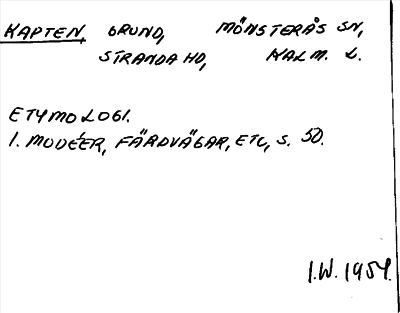 KAPTEN, GRUND, MÖNSTERÅS SN,
STRANDA HD, KALM. L.
ETYMOLOGI.
I. MODÉER, FÄRDVÄGAR, ETC, S. 50.
I.W. 1954.